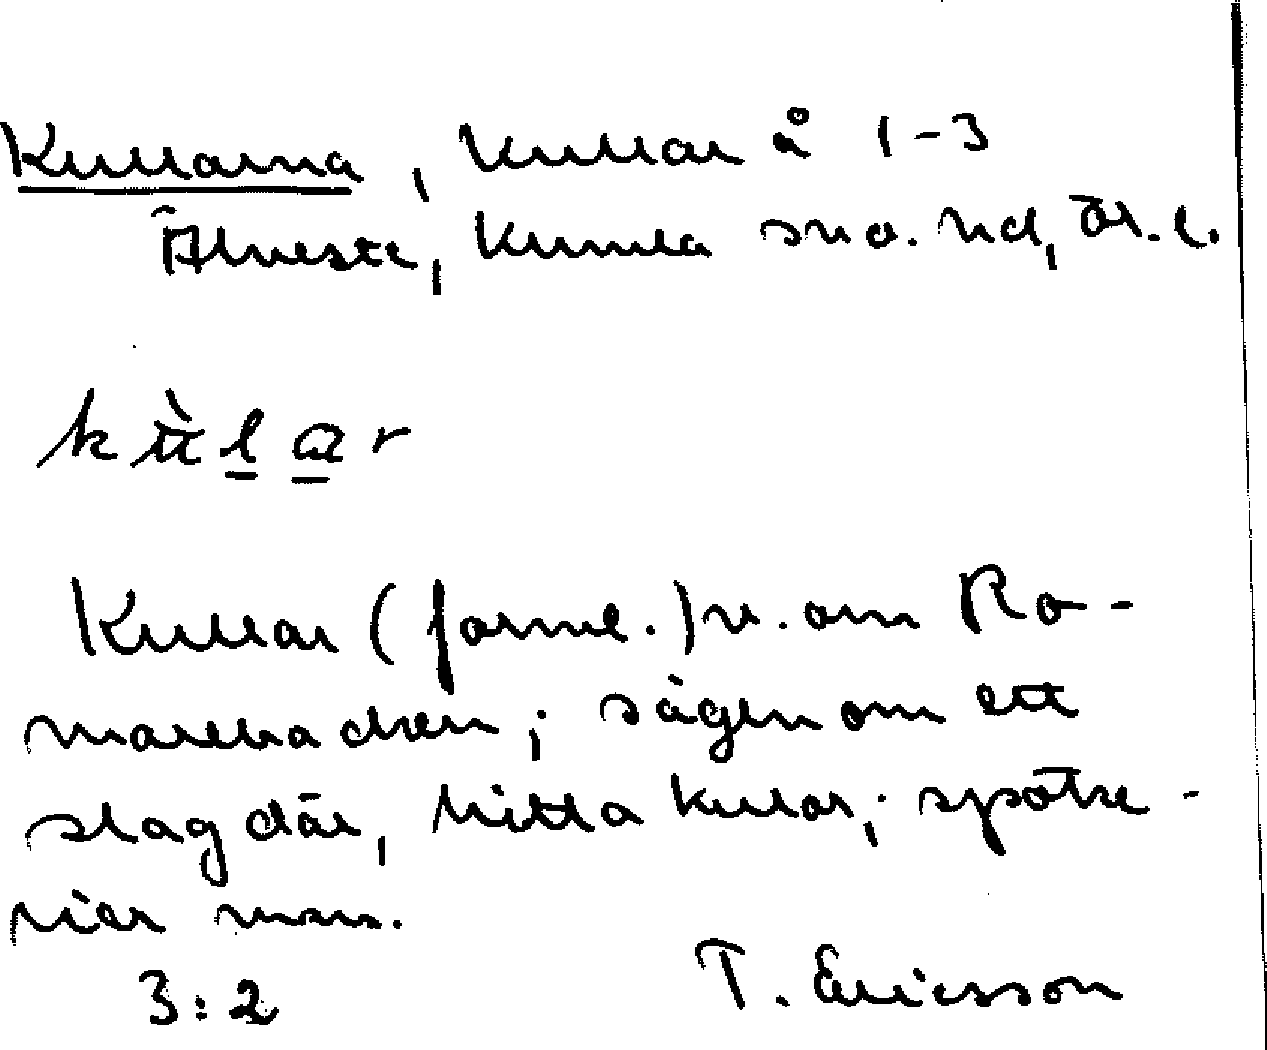 Kullarna, kullar å 1-3
Älvesta, Kumla sn o. hd, Ör. l.
kùlar
Kullar (forml.) v. om Ro-
marebacken; sägen om ett
slag där, hitta kulor; spöke-
rier
3:2 T. Ericsson